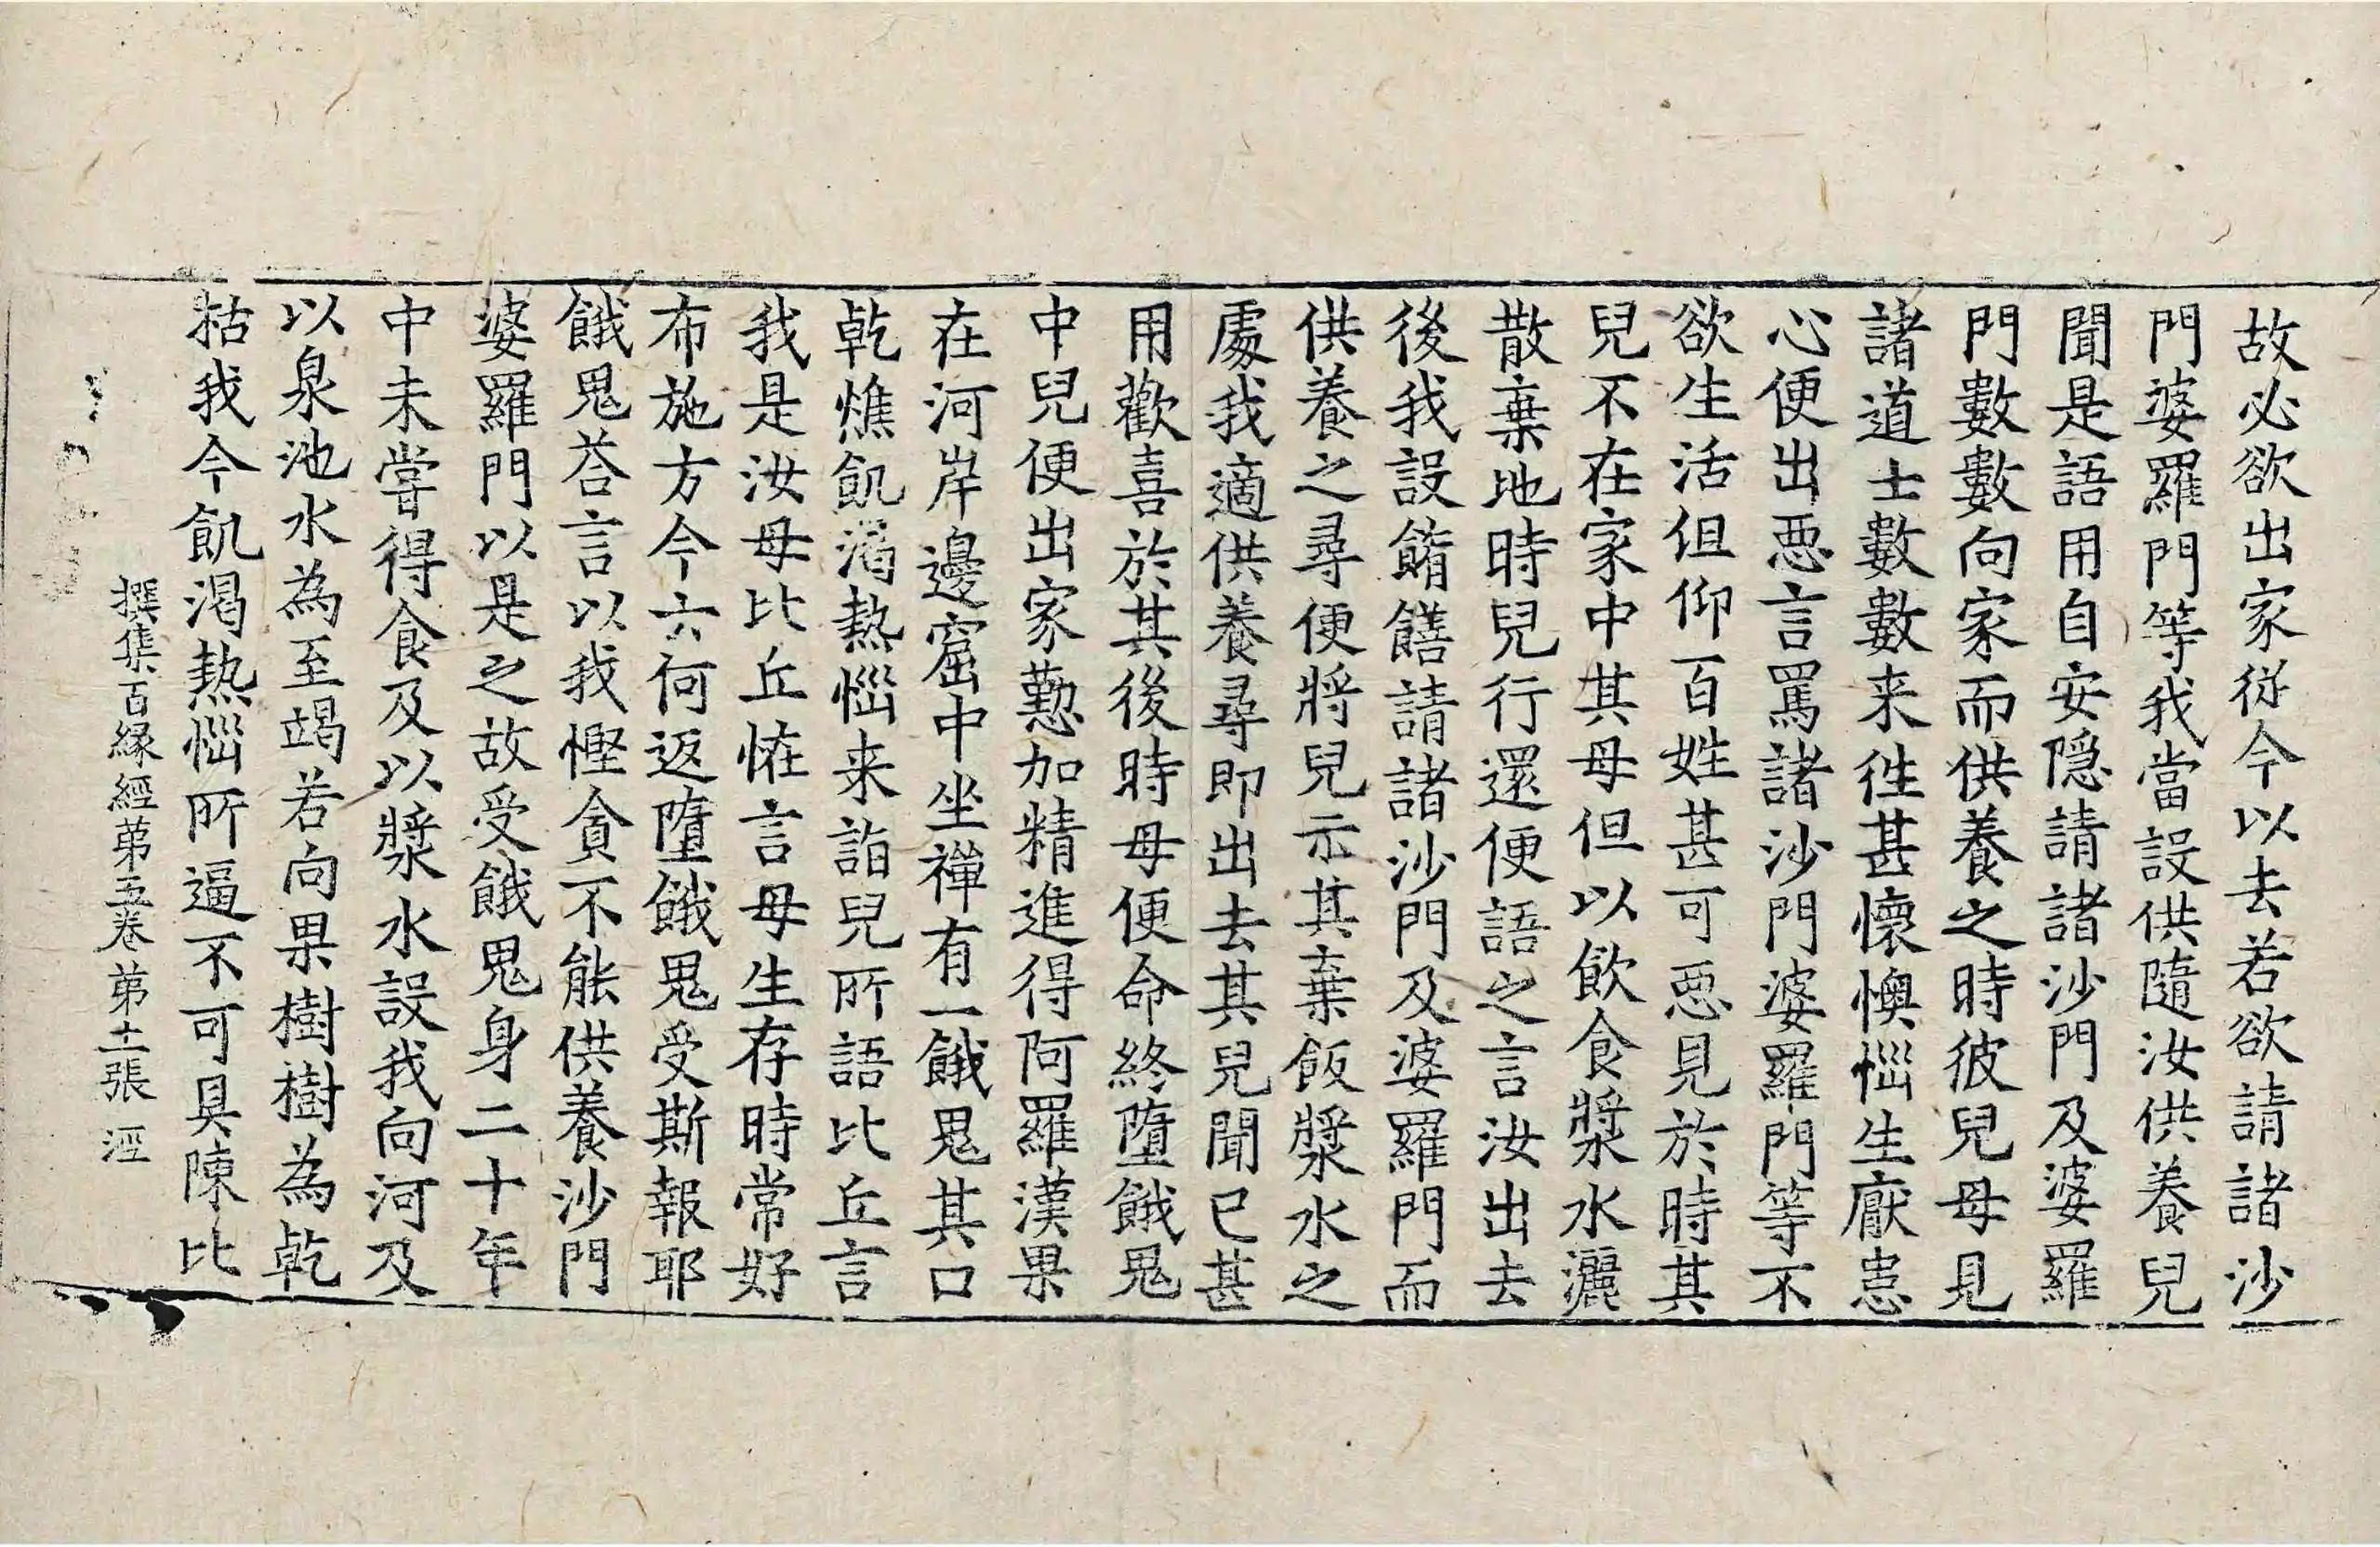 故必欲出家従今以去若欲請諸沙
門婆羅門等我當設供隨汝供養兒
聞是語用自安隠請諸沙門及婆羅
門數數向家而供養之時彼兒母見
諸道士數數来徃甚懷懊惱生厭患
心便出惡言罵諸沙門婆羅門等不
欲生活但仰百姓甚可惡見於時其
兒不在家中其母但以飲食漿水灑
散棄地時兒行還便語之言汝出去
後我設餚饍請諸沙門及婆羅門而
供養之尋便將兒示其棄飯漿水之
處我適供養尋即出去其兒聞已甚
用歡喜於其後時母便命終墮餓鬼
中兒便出家懃加精進得阿羅漢果
在河岸邊窟中坐禪有一餓鬼其口
乾燋飢渴熱惱来詣兒所語比丘言
我是汝母比丘恠言母生存時常好
布施方今云何返墮餓鬼受斯報耶
餓鬼荅言以我慳貪不能供養沙門
婆羅門以是之故受餓鬼身二十年
中未甞得食及以漿水設我向河及
以泉池水為至竭若向果樹樹為乾
枯我今飢渴熱惱所逼不可具陳比
撰集百縁經苐五卷 苐十二張 涇